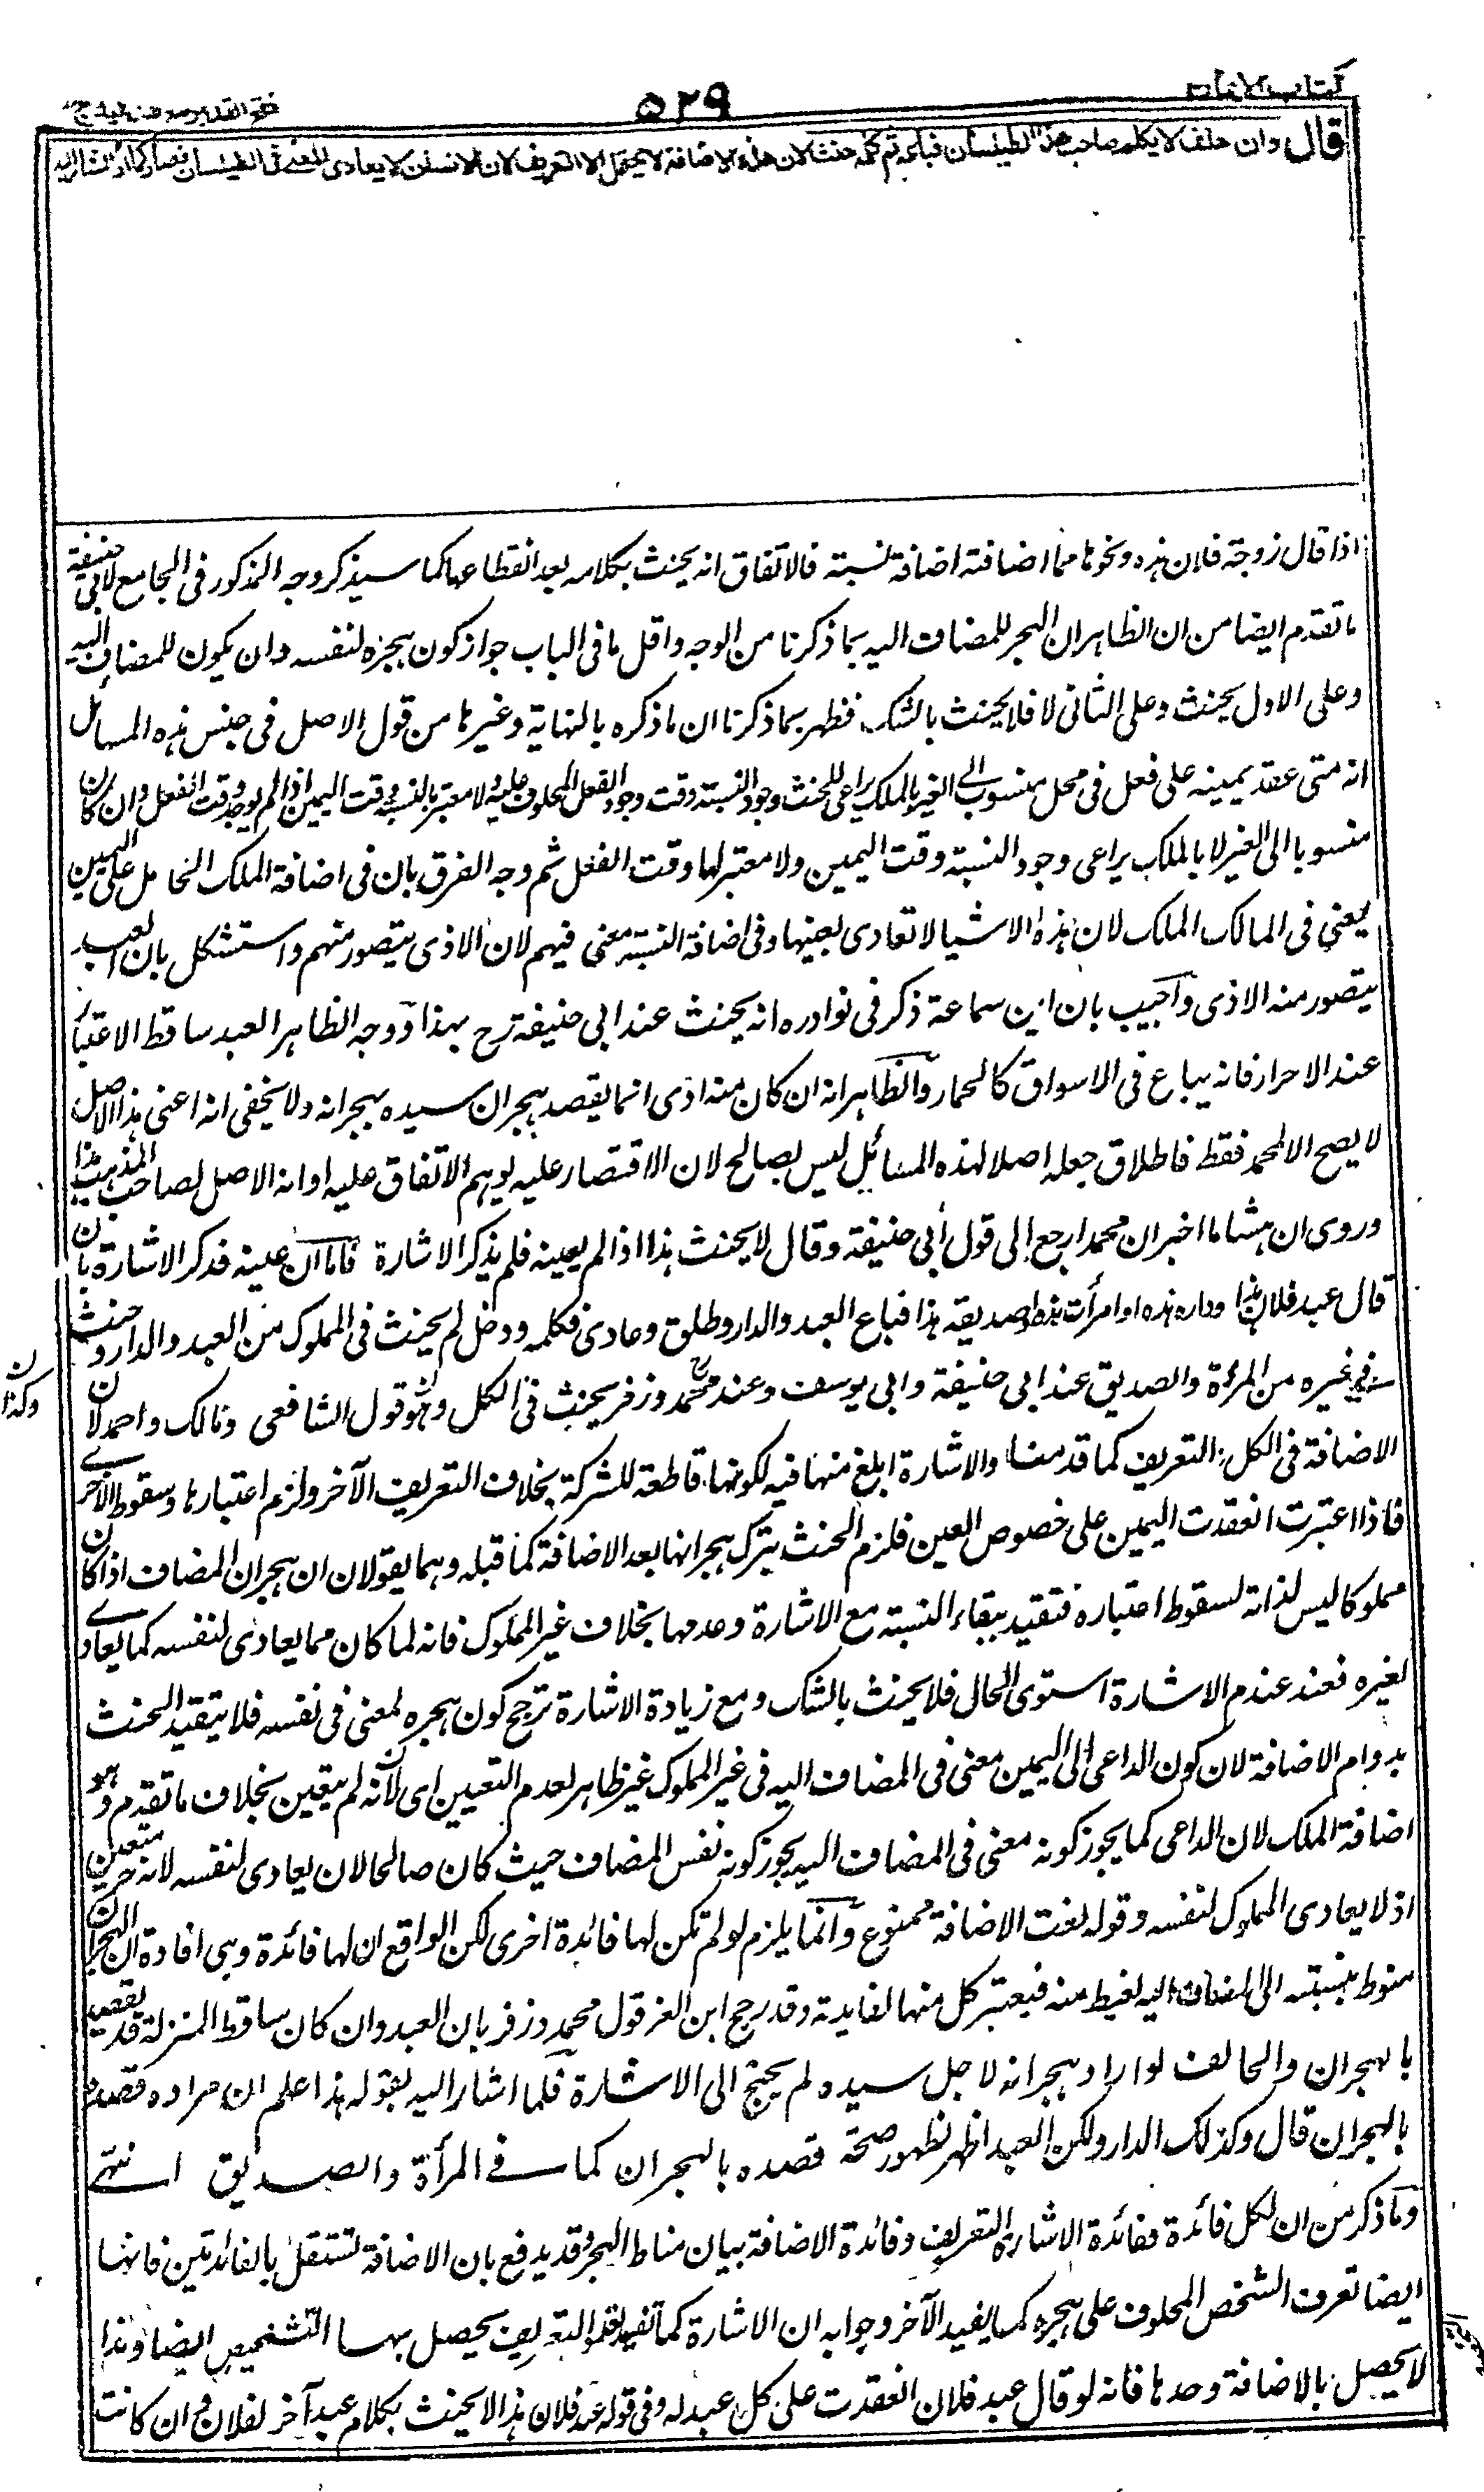 كتاب الايمان
٥٢٩
فتح القدير مع هداية ج
قال وان حلف لا يكلم صاحب هذا الطيلسان فباعه ثم كلمه حنث لان هذه الاضافة لا يحتمل الا التعريف لان الانسان لا يعادى لمعنى فى الطيلسان فصار كما اذا اشار اليه
اذا قال زوجة فلان هذه ونحوها مما اضافته اضافة نسبة فالاتفاق انه يحنث بكلامه بعد انقطاعها كما سيذكر وجه المذكور فى الجامع لابى حنيفة
ما تقدم ايضا من ان الظاهر ان الهجر للمضاف اليه بما ذكرنا من الوجه واقل ما فى الباب جواز كون هجره لنفسه وان يكون للمضاف اليه
وعلى الاول يحنث وعلى الثانى لا فلا يحنث بالشك فظهر بما ذكرنا ان ما ذكره بالنهاية وغيرها من قول الاصل فى جنس هذه المسائل
انه متى عقد يمينه على فعل فى محل منسوب الى الغير بالملك يراعى للحنث وجود النسبة وقت وجود الفعل المحلوف عليه ولا معتبر بالنسبة وقت اليمين اذا لم يوجد وقت الفعل وان كان
منسوبا الى الغير لا بالملك يراعى وجود النسبة وقت اليمين ولا معتبر لها وقت الفعل ثم وجه الفرق بان فى اضافة الملك الحامل على اليمين
يعنى فى المالك الملك لان هذه الاشيا لا تعادى لعينها وفى اضافة النسبة معنى فيهم لان الاذى يتصور منهم واستشكل بان العبد
يتصور منه الاذى واجيب بان ابن سماعة ذكر فى نوادره انه يحنث عند ابى حنيفة رح بهذا ووجه الظاهر العبد ساقط الاعتبار
عند الاحرار فانه يباع فى الاسواق كالحمار والظاهر انه ان كان منه اذى انما يقصد هجران سيده بهجرانه ولا يخفى انه اعنى هذا الاصل
لا يصح الا لمحمد فقط فاطلاق جعله اصلا لهذه المسائل ليس بصالح لان الاقتصار عليه يوهم الاتفاق عليه او انه الاصل لصاحب المذهب هذا
وروى ان هشاما اخبر ان محمدا رجع الى قول ابى حنيفة وقال لا يحنث هذا اذا لم يعينه فلم يذكر الاشارة فاما ان عينه فذكر الاشارة بان
قال عبد فلان هذا وداره هذه او امرأته هذه او صديقه هذا فباع العبد والدار وطلق وعادى فكلمه ودخل لم يحنث فى المملوك من العبد والدار وحنث
فى غيره من المرأة والصديق عند ابى حنيفة وابى يوسف وعند محمد وزفر يحنث فى الكل وهو قول الشافعى ومالك واحمد لان
وكذا ن
الاضافة فى الكل للتعريف كما قدمنا والاشارة ابلغ منها فيه لكونها قاطعة للشركة بخلاف التعريف الآخر ولزم اعتبارها وسقوط الاخرى
فاذا اعتبرت انعقدت اليمين على خصوص العين فلزم الحنث بترك هجرانها بعد الاضافة كما قبله وهما يقولان ان هجران المضاف اذا كان
مملوكا ليس لذاته لسقوط اعتباره فتقيد ببقاء النسبة مع الاشارة وعدمها بخلاف غير المملوك فانه لما كان مما يعادى لنفسه كما يعادى
لغيره فعند عدم الاشارة استوى الحال فلا يحنث بالشك ومع زيادة الاشارة ترجح كون هجره لمعنى فى نفسه فلا يتقيد الحنث
بدوام الاضافة لان كون الداعى الى اليمين معنى فى المضاف اليه فى غير المملوك غير ظاهر لعدم التعيين اى لانه لم يتعين بخلاف ما تقدم وهو
اضافة الملك لان الداعى كما يجوز كونه معنى فى المضاف اليه يجوز كونه نفس المضاف حيث كان صالحا لان يعادى لنفسه لانه حر متعين
اذ لا يعادى المملوك لنفسه وقوله لغت الاضافة ممنوع وانما يلزم لو لم تكن لها فائدة اخرى لكن الواقع ان لها فائدة وهى افادة ان الهجران
منوط بنسبته الى المضاف اليه لغيظ منه فيعتبر كل منها لفايدة وقد رجح ابن العز قول محمد وزفر بان العبد وان كان ساقط المنزلة قد يقصد
بالهجران والحالف لو اراد هجرانه لاجل سيده لم يحتج الى الاشارة فلما اشار اليه بقوله هذا علم ان مراده قصده
بالهجران قال وكذلك الدار ولكن العبد اظهر لظهور صحة قصده بالهجران كما فى المرأة والصديق انتهى
وما ذكر من ان لكل فائدة ففائدة الاشارة التعريف وفائدة الاضافة بيان مناط الهجر قد يدفع بان الاضافة تستقل بالفائدتين فانها
ايضا تعرف الشخص المحلوف على هجره كما يفيد الآخر وجوابه ان الاشارة كما تفيد التعريف يحصل بها التشخيص ايضا وهذا
لا يحصل بالاضافة وحدها فانه لو قال عبد فلان انعقدت على كل عبد له وفى قوله عبد فلان هذا لا يحنث بكلام عبد آخر لفلان وان كانت